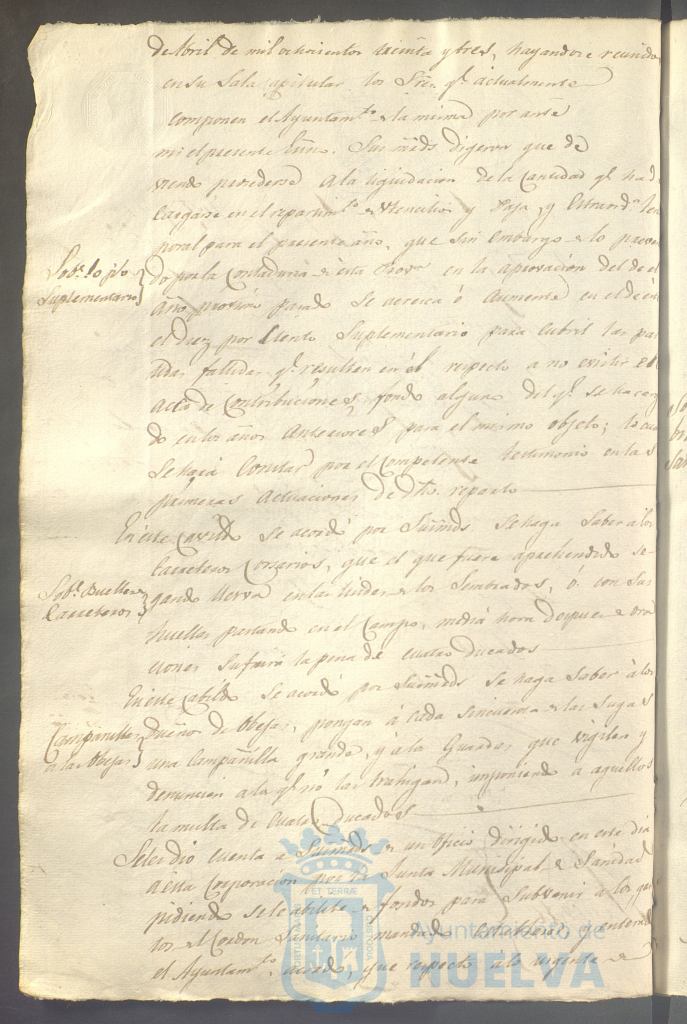 de Abril de mil ochocientos treinta y tres, hayandose reunido
en su Sala Capitular los Sres. q.e actualmente
componen el Ayuntam.to de la misma por ante
mi el presente Esno. Sus mrds. digeron que de
viendo procederse a la liquidacion de la Cantidad q.e ha d
Cargarse en el repartim.to de Utencilios y Paja, y Extraord.n tem
poral para el presente año, que sin embargo de lo preve
Sob.e lo p.lo
do por la Contaduria de esta Prov.a en la aprovacion del de el
Suplementario
año proximo pasado se acresca ó aumente en el de este
el diez por Ciento Suplementario para cubrir las par
tidas fallidas q.e resulten en él respecto a no existir el
acto de Contribuciones, fondo alguno del q.e se hacer
do en los años anteriores para el mismo objeto; lo cual
se hará Constar por el Competente testimonio en las
primeras actuaciones de dho. reparto
En este Cavildo se acordó por Sus mrds. se haga saber a los
Carreteros Cosarios, que el que fuere aprehendido se
Sob.e Bueltas
gando Yerva en las lindes de los Sembrados, ó con sus
Carreteros
huelles pastando en el Campo, media hora despues de Ora
ciones sufrirá la pena de cuatro Ducados
En este Cabildo se acordó por Sus mrds. se haga saber á los
Campanillas
Dueños de Obejas, pongan á cada sincuenta de las suyas
a las Obejas
una Campanilla grande, y á los Guardas que vigilen y
denuncien a la q.e nó las traigan, imponiendo a aquellos
la multa de cuatro Ducados
Se les dio cuenta a Sus mrds. de un Oficio dirigido en este dia
a esta Corporacion por la Junta Municipal de Sanidad
pidiendo se le abilite de fondos para subvenir a los gas
tos del Cordon Sanitario mandado establecer y enterado
el Ayuntam.to acordó, que respecto a lo urgente de
Ayuntamiento de
HUELVA